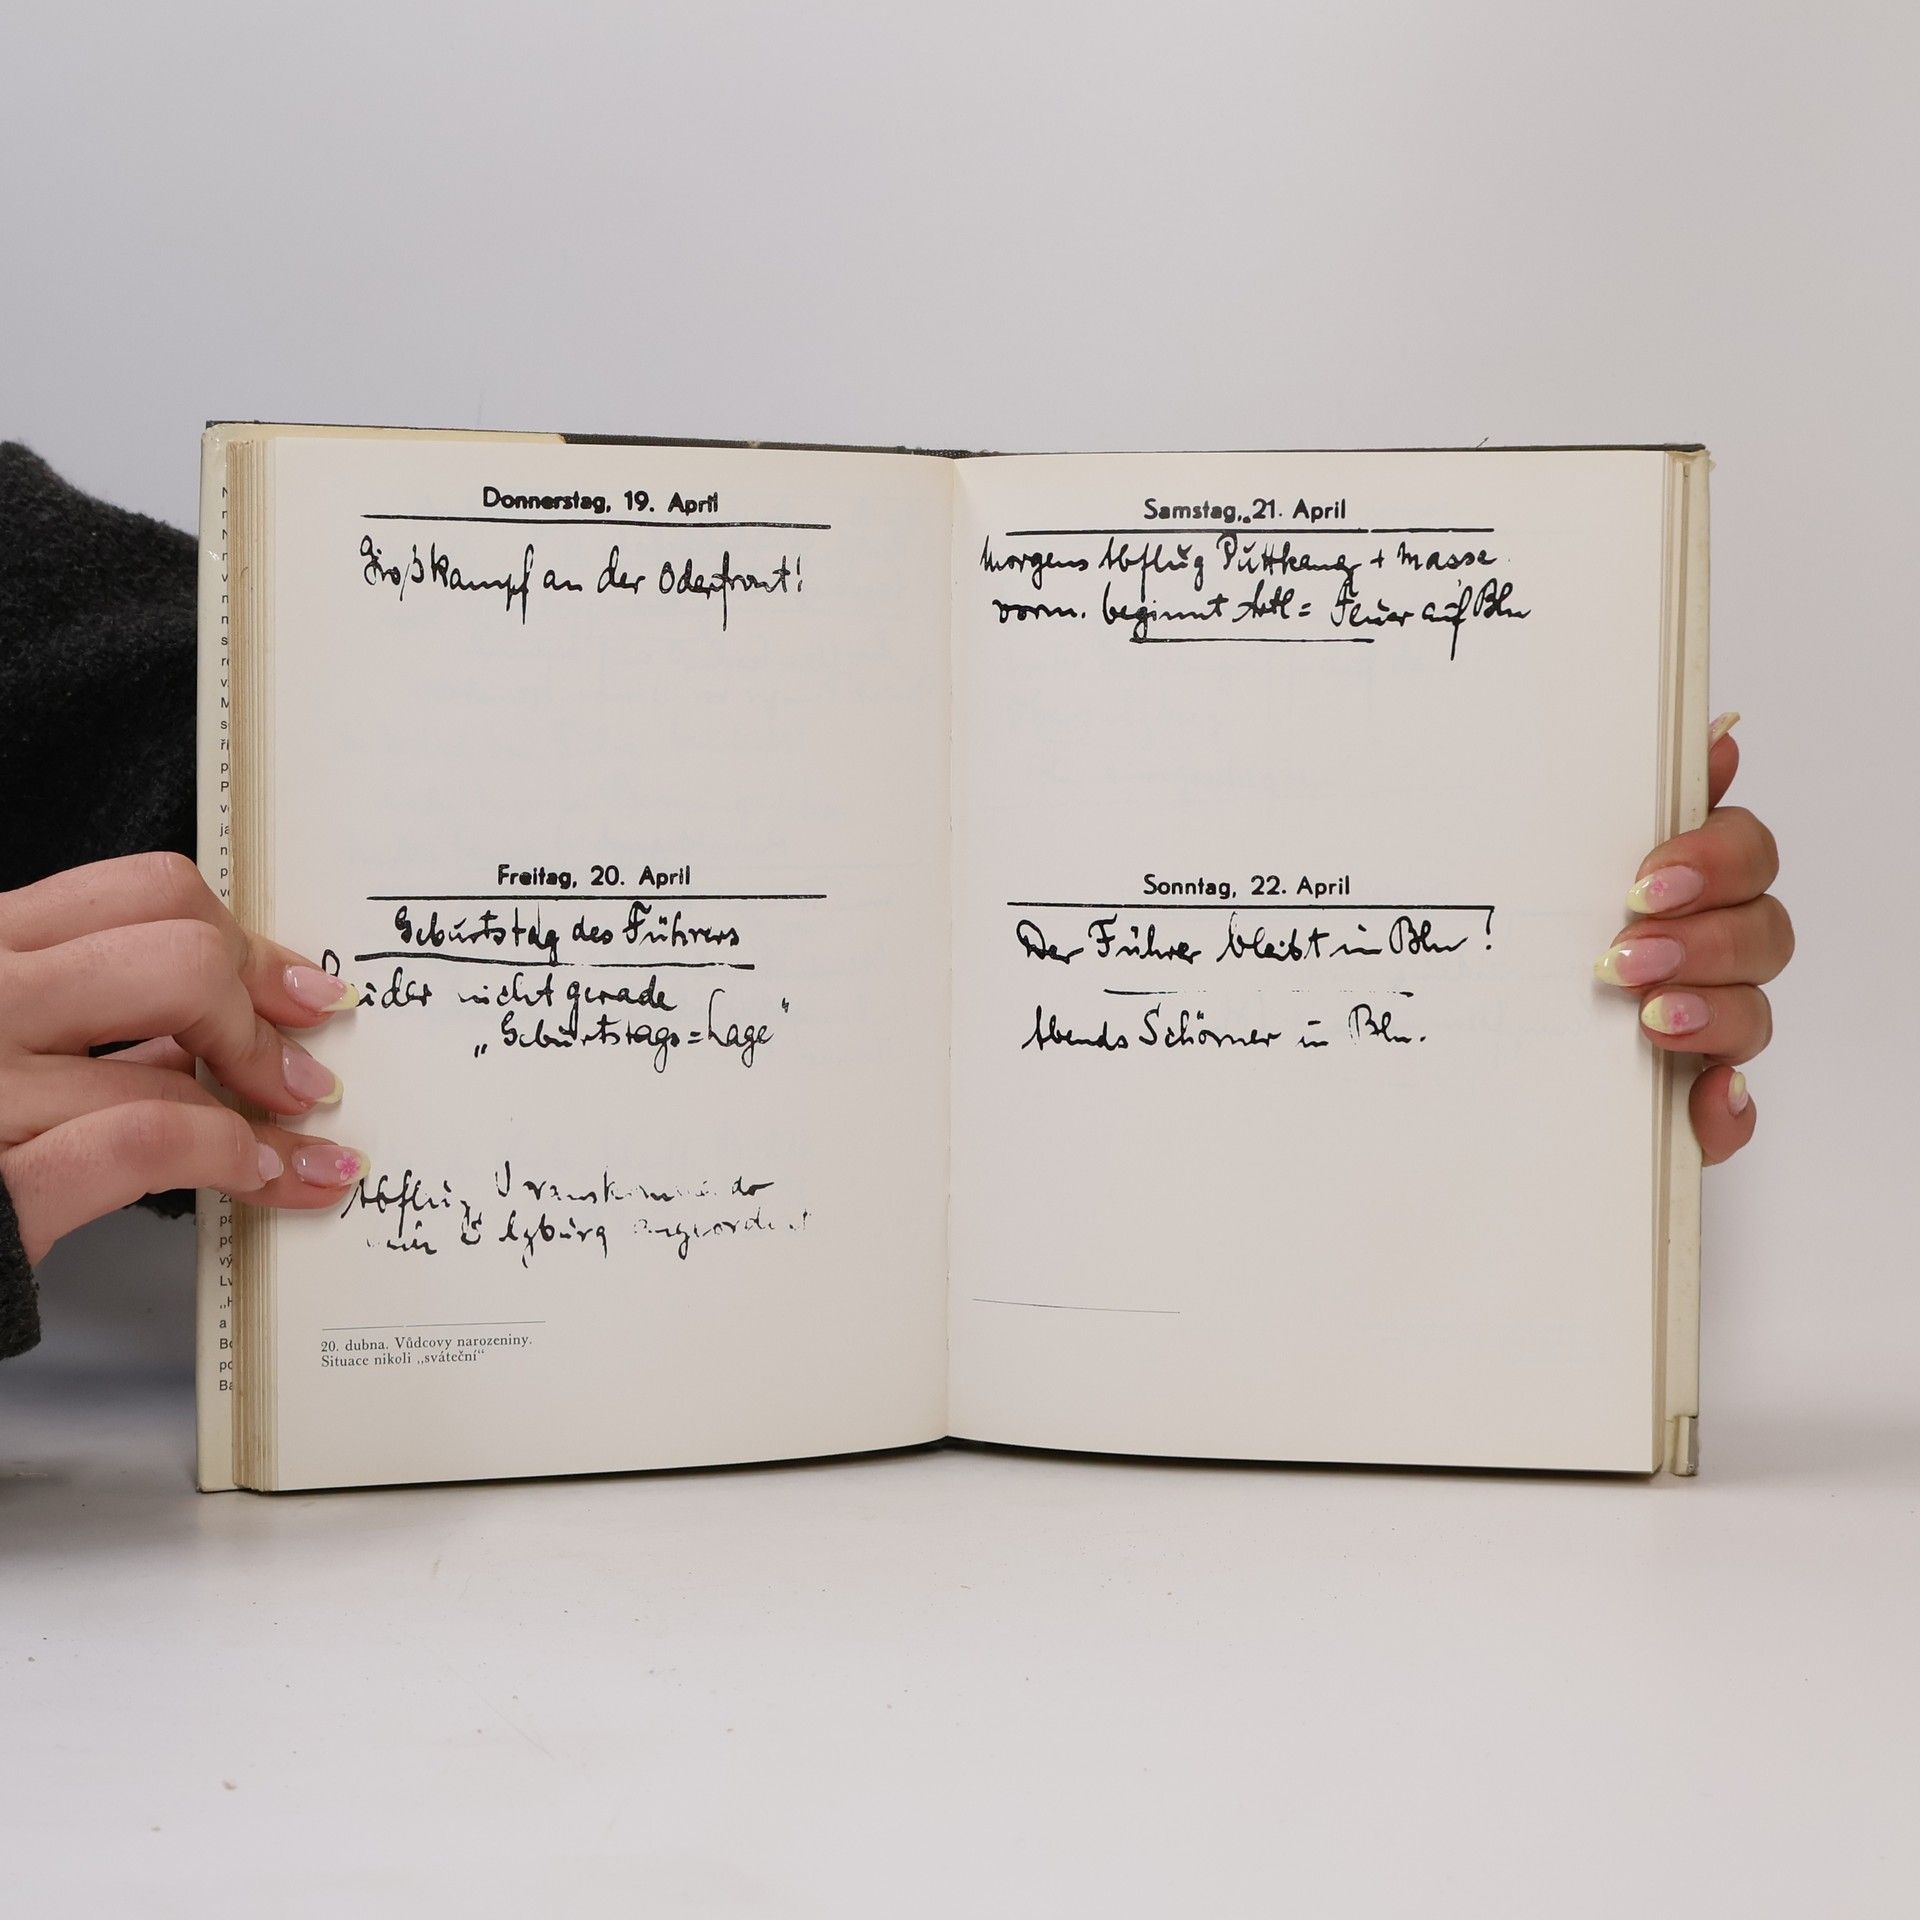 Donnerstag, 19. April
Großkampf an der Oderfront!
Freitag, 20. April
Geburtstag des Führers
nicht gerade
„Geburtstags=Lage"
Abflug
angeordnet
20. dubna. Vůdcovy narozeniny.
Situace nikoli „sváteční“
Samstag, 21. April
Morgens Abflug Puttkamer + Masse
vorm. beginnt Artl= Feuer auf Bln
Sonntag, 22. April
Der Führer bleibt in Bln!
Abends Schörner in Bln.